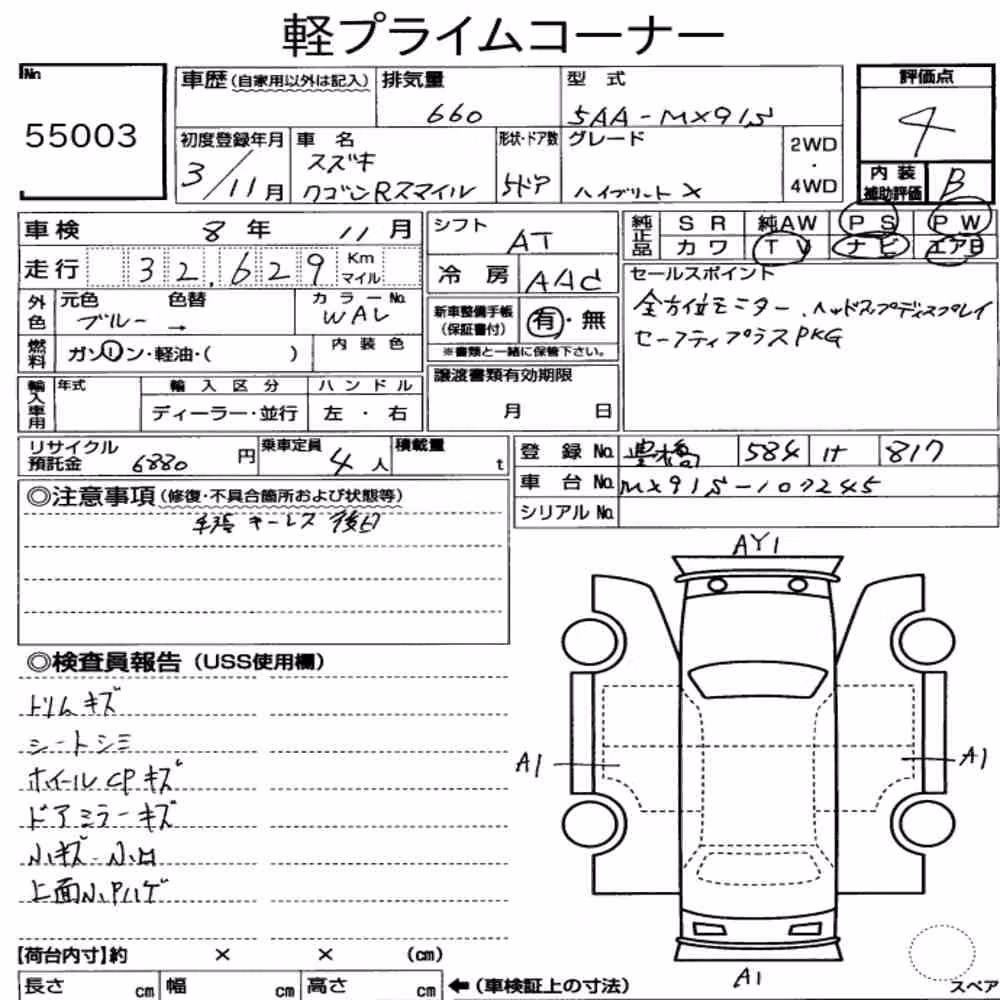 軽プライムコーナー
No.
55003
車歴(自家用以外は記入)
排気量
660
型 式
5AA-MX91S
評価点
4
初度登録年月
3/11月
車 名
スズキ
ワゴンRスマイル
形状・ドア数
5ドア
グレード
ハイブリット X
2WD
・
4WD
内 装
補助評価
B
車検 8年 11月
シフト
AT
純正品
S R 純AW P S P W
カワ T V ナビ エアB
走行 32,629 Km マイル
冷 房 AAC
セールスポイント
全方位モニター、ヘッドスプディスプレイ
セーフティプラスPKG
外色
元色 色替
ブルー →
カラーNo.
WAL
新車整備手帳
(保証書付)
有・無
※書類と一緒に保管下さい。
燃料
ガソリン・軽油・( )
内 装 色
輸入車用
年式
輸 入 区 分
ディーラー・並行
ハ ン ド ル
左 ・ 右
譲渡書類有効期限
月 日
リサイクル
預託金 6880 円
乗車定員
4 人
積載量
t
登 録 No. 豊橋 584 け 817
車 台 No. MX91S-107245
シリアル No.
◎注意事項(修復・不具合箇所および状態等)
手帳 キーレス 後日
◎検査員報告(USS使用欄)
トリムキズ
シートシミ
ホイールCPキズ
ドアミラーキズ
小キズ-小凹
上面小Pハゲ
AY1
A1
A1
A1
【荷台内寸】約 × × (cm)
長さ cm 幅 cm 高さ cm ←(車検証上の寸法)
スペア